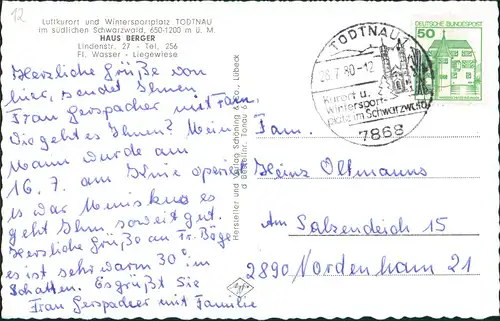 12
Luftkurort und Wintersportplatz TODTNAU
im südlichen Schwarzwald, 650-1200 m ü. M.
HAUS BERGER
Lindenstr. 27 - Tel. 256
Fl. Wasser - Liegewiese
Herzliche Grüße von
hier, sendet Ihnen
Frau Gerspacher mit Fam.
Wie geht es Ihnen? Mein
Mann wurde am
16.7. am Knie operiert
es war Meniskus es
geht Ihm soweit gut.
Herzliche Grüße an Fr. Böge
es ist sehr warm 30° im
Schatten. Es grüßt Sie
Frau Gerspacher mit Familie
Hersteller und Verlag Schöning & Co., Lübeck
Bestellnr. Todtnau
Agfa
TODTNAU 1
28.7.80-12
Kurort u.
Wintersport-
platz im Schwarzwald
7868
50
DEUTSCHE BUNDESPOST
Fam.
Heinz Oltmanns
Am Salzendeich 15
2890 Nordenham 21